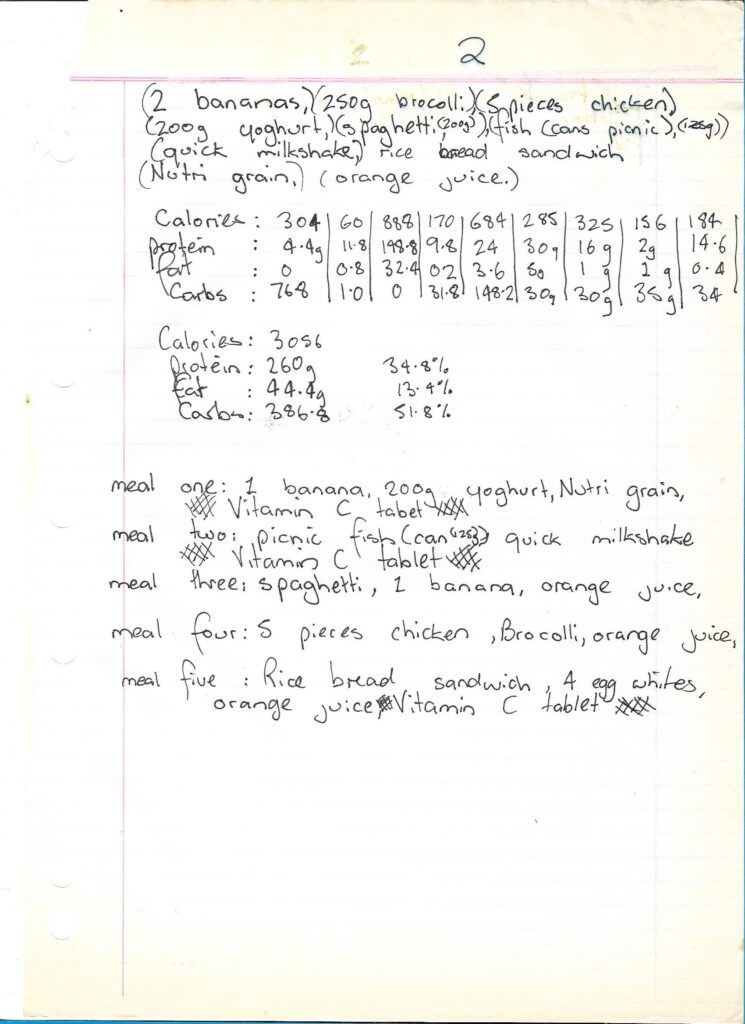 2
(2 bananas,)(250g brocolli)(5 pieces chicken)
(200g yoghurt,)(spaghetti,(200g)),(fish (cans picnic),(125g))
(quick milkshake,) rice bread sandwich
(Nutri grain.) (orange juice.)
Calories : 304 | 60 | 888 | 170 | 684 | 285 | 325 | 156 | 184
protein : 4.4g | 11.8 | 148.8 | 9.8 | 24 | 30g | 16g | 2g | 14.6
fat : 0 | 0.8 | 32.4 | 02 | 3.6 | 5g | 1g | 1g | 0.4
Carbs : 768 | 1.0 | 0 | 31.8 | 148.2 | 30g | 30g | 35g | 34
Calories: 3056
protein: 260g 34.8%
fat : 44.4g 13.4%
Carbs: 386.8 51.8%
meal one: 1 banana, 200g yoghurt, Nutri grain,
Vitamin C tabet
meal two: picnic fish (can(125g)) quick milkshake
Vitamin C tablet
meal three: spaghetti, 1 banana, orange juice,
meal four: 5 pieces chicken, Brocolli, orange juice,
meal five : Rice bread sandwich, 4 egg whites,
orange juice, Vitamin C tablet